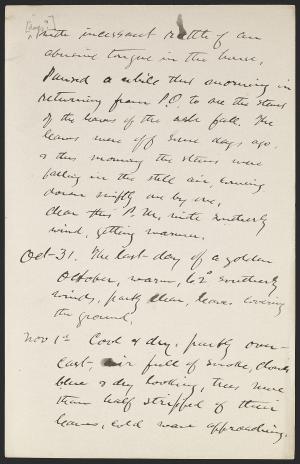 with incessant rattle of an
abusive tongue in the house,
Paused a while this morning in
returning from P.O. to see the stems
of the leaves of the ash fall. The
leaves were off some days ago,
& this morning the stems were
falling in the still air, coming
down swiftly one by one,
clear this P.M. with southerly
wind, getting warmer.
Oct-31. The last day of a golden
October, warm, 62° southerly
winds, partly clear, leaves covering
the ground,
Nov 1st Cool & dry, partly over-
cast, air full of smoke, clouds
blue & dry looking, trees more
than half stripped of their
leaves, cold wave approaching.